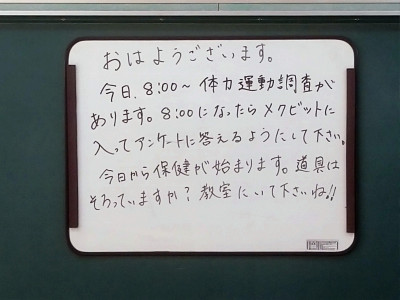 おはようございます。
今日、8:00～ 体力運動調査が
あります。8:00になったらメクビットに
入ってアンケートに答えるようにして下さい。
今日から保健が始まります。道具は
そろっていますか？教室にいて下さいね!!